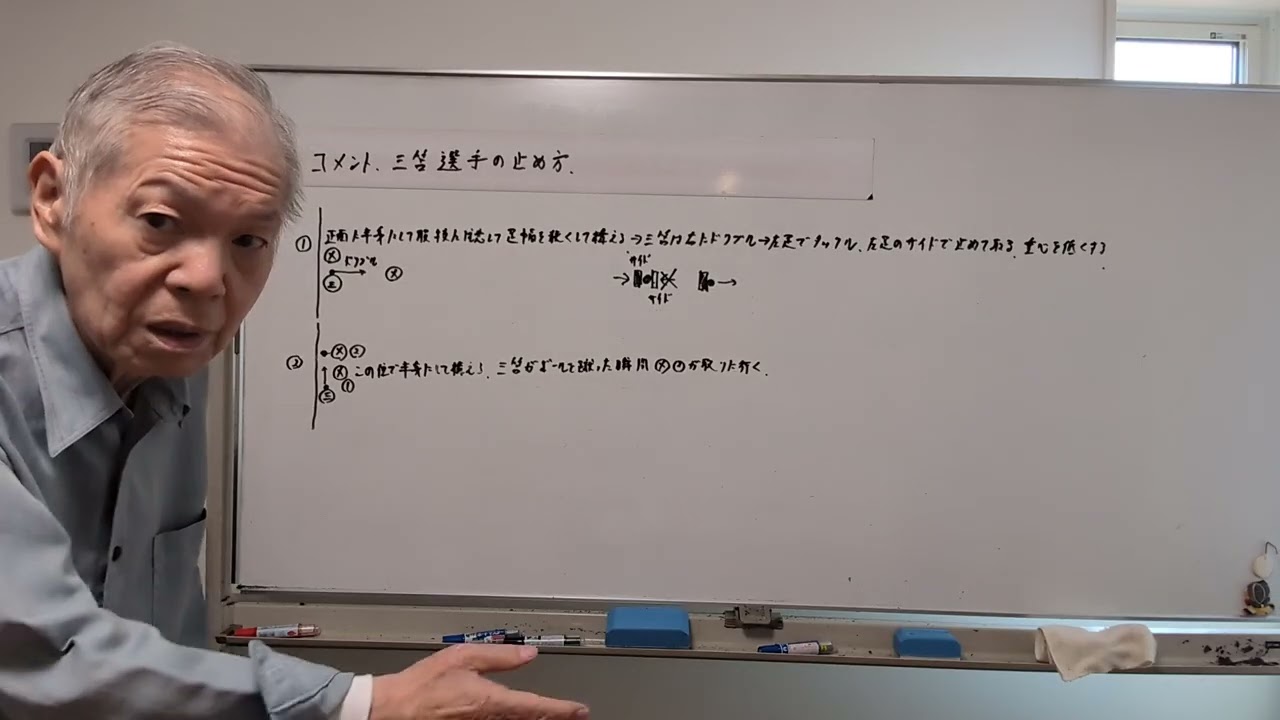 コメント、三笘選手の止め方.
① 正面に半身にして股抜に注意して足幅を狭くして構える→三笘は右にドリブル→左足でタックル、左足のサイドで止めてみる、重心を低くする
Ⓧ ドリブル サイド
㊂ Ⓧ
サイド
Ⓧ②
② Ⓧ この位で半身にして構える、三笘がボールを蹴った瞬間Ⓧ①が取りに行く.
㊂ ①